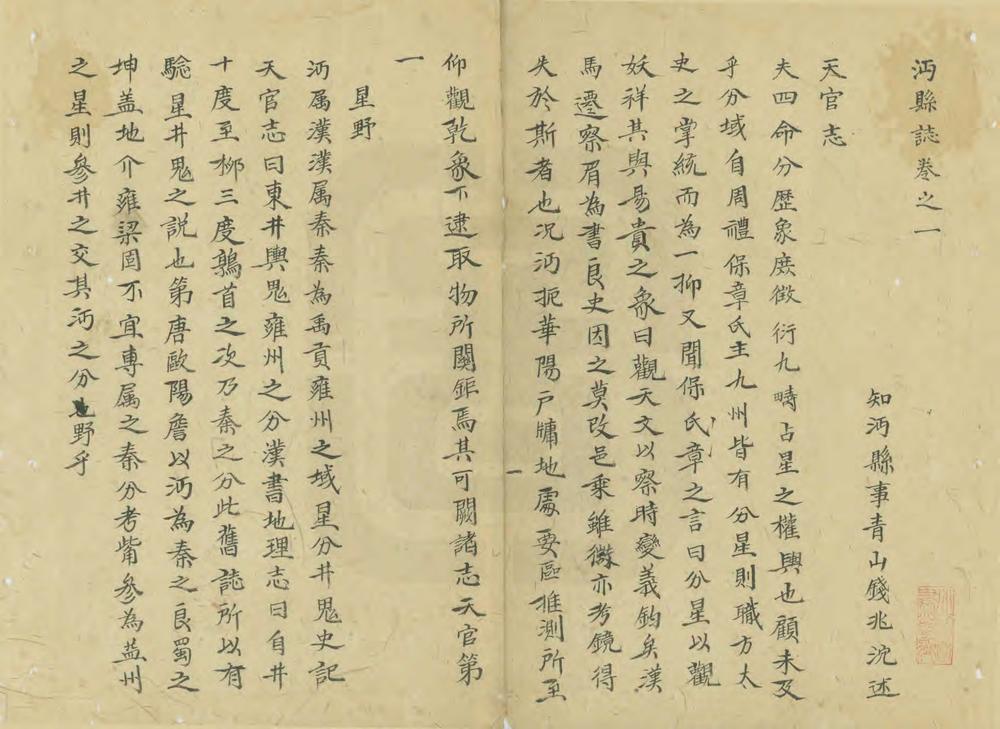 沔縣誌卷之一
知沔縣事青山錢兆沆述
天官志
夫四命分歷象庶徵衍九疇占星之權輿也顧未及
乎分域自周禮保章氏主九州皆有分星則職方太
史之掌統而為一抑又聞保氏章之言曰分星以觀
妖祥其與易賁之彖曰觀天文以察時變義鈞矣漢
馬遷察眉為書良史因之莫改邑乘雖微亦考鏡得
失於斯者也况沔扼華陽戶牗地處要區推測所至
仰觀乾象下逮取物所關鉅焉其可闕諸志天官第
一
星野
沔属漢漢属秦秦為禹貢雍州之域星分井鬼史記
天官志曰東井輿鬼雍州之分漢書地理志曰自井
十度至栁三度鶉首之次乃秦之分此舊誌所以有
騐星井鬼之説也第唐歐陽詹以沔為秦之良蜀之
坤盖地介雍梁固不宜專属之秦分考觜參為益州
之星則參井之交其沔之分野乎